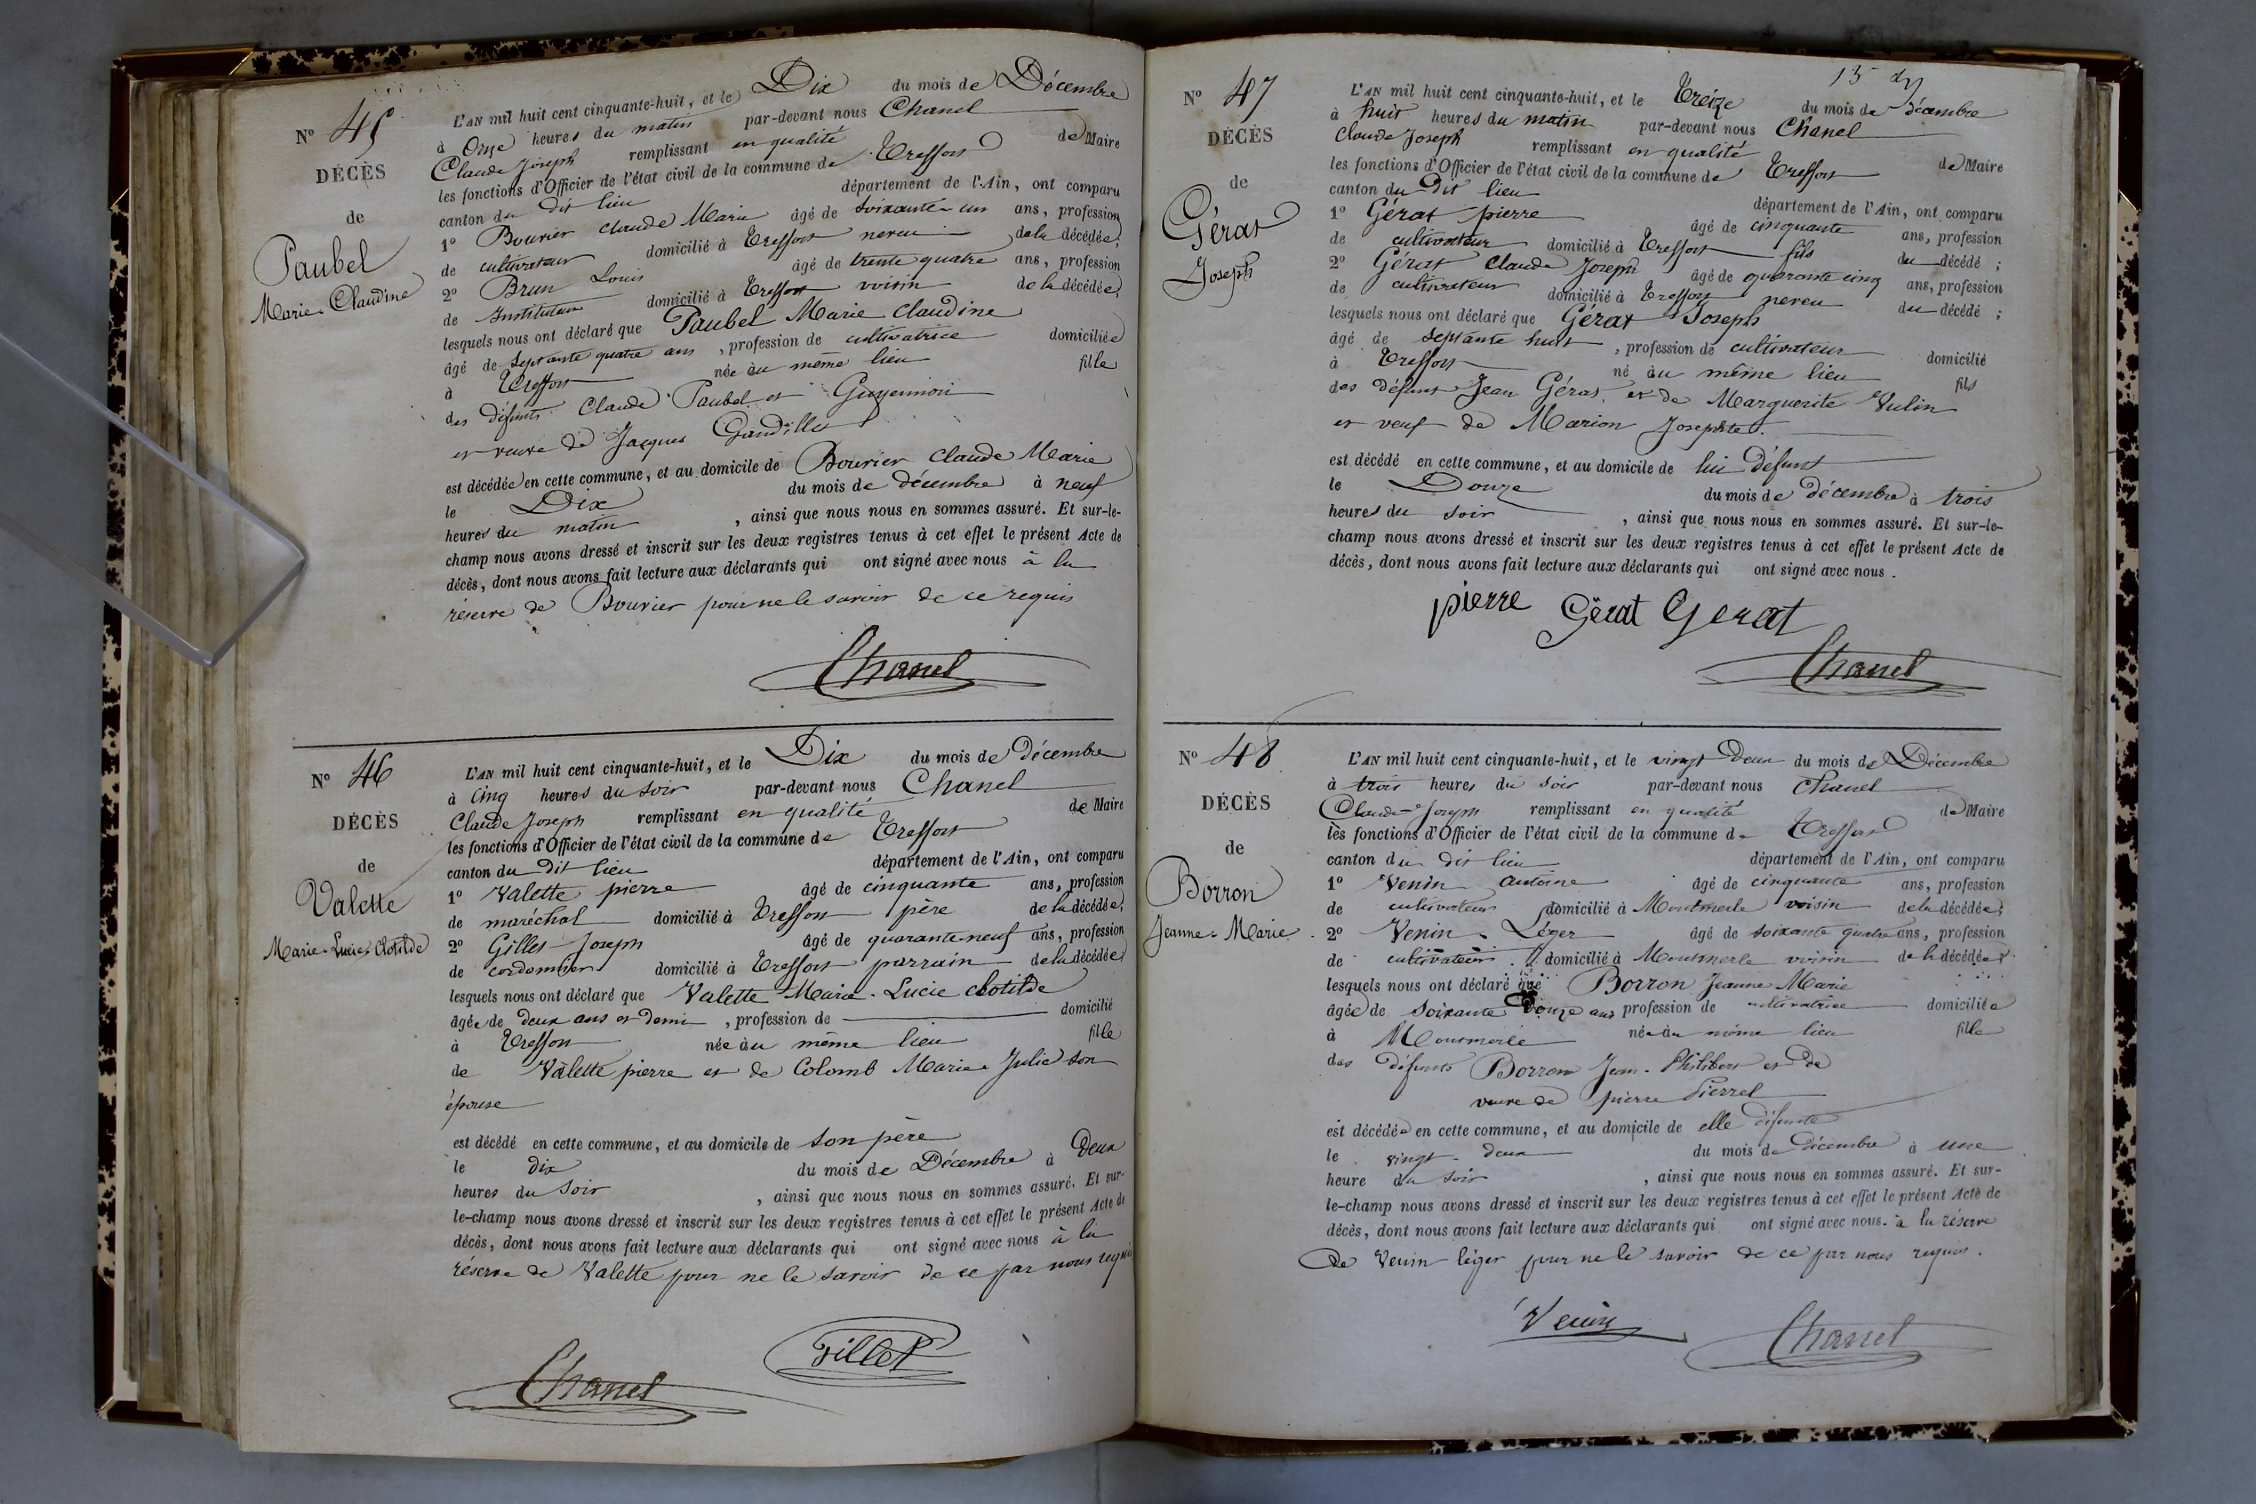 N° 45
DÉCÈS
de
Paubel
Marie-Claudine
L'AN mil huit cent cinquante-huit, et le Dix du mois de Décembre
à Onze heures du matin par-devant nous Chanel
Claude Joseph remplissant en qualité de Maire
les fonctions d'Officier de l'état civil de la commune de Treffort
canton du dit lieu département de l'Ain, ont comparu
1° Bouvier Claude Marie âgé de soixante-un ans, profession
de cultivateur domicilié à Treffort neveu de la décédée;
2° Brun Louis âgé de trente quatre ans, profession
de Instituteur domicilié à Treffort voisin de la décédée;
lesquels nous ont déclaré que Paubel Marie Claudine
âgé de septante quatre ans, profession de cultivatrice domiciliée
à Treffort née au même lieu fille
des défunts Claude Paubel et Guyennion
et veuve de Jacques Gandillet
est décédée en cette commune, et au domicile de Bouvier Claude Marie
le Dix du mois de décembre à neuf
heures du matin, ainsi que nous nous en sommes assuré. Et sur-le-
champ nous avons dressé et inscrit sur les deux registres tenus à cet effet le présent Acte de
décès, dont nous avons fait lecture aux déclarants qui ont signé avec nous à la
réserve de Bouvier pour ne le savoir de ce requis
Chanel
N° 46
DÉCÈS
de
Valette
Marie-Lucie-Clotilde
L'AN mil huit cent cinquante-huit, et le Dix du mois de décembre
à cinq heures du soir par-devant nous Chanel
Claude Joseph remplissant en qualité de Maire
les fonctions d'Officier de l'état civil de la commune de Treffort
canton du dit lieu département de l'Ain, ont comparu
1° Valette pierre âgé de cinquante ans, profession
de maréchal domicilié à Treffort père de la décédée;
2° Gilles Joseph âgé de quarante-neuf ans, profession
de cordonnier domicilié à Treffort parrain de la décédée;
lesquels nous ont déclaré que Valette Marie-Lucie clotilde
âgée de deux ans et demi, profession de domicilié
à Treffort née au même lieu fille
de Valette pierre et de Colomb Marie-Julie son
épouse
est décédé en cette commune, et au domicile de son père
le dix du mois de Décembre à Deux
heures du soir, ainsi que nous nous en sommes assuré. Et sur-
le-champ nous avons dressé et inscrit sur les deux registres tenus à cet effet le présent Acte de
décès, dont nous avons fait lecture aux déclarants qui ont signé avec nous à la
réserve de Valette pour ne le savoir de ce par nous requis
Chanel
N° 47
DÉCÈS
de
Gérat
Joseph
L'AN mil huit cent cinquante-huit, et le Treize du mois de décembre
à huit heures du matin par-devant nous Chanel
Claude Joseph remplissant en qualité de Maire
les fonctions d'Officier de l'état civil de la commune de Treffort
canton du Dit lieu département de l'Ain, ont comparu
1° Gérat pierre âgé de cinquante ans, profession
de cultivateur domicilié à Treffort fils du décédé;
2° Gérat Claude Joseph âgé de quarante cinq ans, profession
de cultivateur domicilié à Treffort neveu du décédé;
lesquels nous ont déclaré que Gérat Joseph
âgé de septante huit, profession de cultivateur domicilié
à Treffort né au même lieu fils
des défunt Jean Gérat, et de Marguerite Vulin
et veuf de Marion Josephte.
est décédé en cette commune, et au domicile de lui défunt
le Douze du mois de décembre à trois
heures du soir, ainsi que nous nous en sommes assuré. Et sur-le-
champ nous avons dressé et inscrit sur les deux registres tenus à cet effet le présent Acte de
décès, dont nous avons fait lecture aux déclarants qui ont signé avec nous.
pierre Gérat Gerat
Chanel
N° 48
DÉCÈS
de
Borron
Jeanne-Marie
L'AN mil huit cent cinquante-huit, et le vingt Deux du mois de Décembre
à trois heures du soir par-devant nous Chanel
Claude-Joseph remplissant en qualité de Maire
les fonctions d'Officier de l'état civil de la commune de Treffort
canton du dit lieu département de l'Ain, ont comparu
1° Venin antoine âgé de cinquante ans, profession
de cultivateur domicilié à Montmerle voisin de la décédée;
2° Venin Léger âgé de soixante quatre ans, profession
de cultivateur domicilié à Montmerle voisin de la décédée;
lesquels nous ont déclaré que Borron Jeanne Marie
âgée de soixante Douze ans profession de cultivatrice domiciliée
à Montmerle née au même lieu fille
des défunts Borron Jean-Philibert et de
veuve de pierre Pierrel
est décédée en cette commune, et au domicile de elle défunte
le vingt-deux du mois de Décembre à une
heure du soir, ainsi que nous nous en sommes assuré. Et sur-
le-champ nous avons dressé et inscrit sur les deux registres tenus à cet effet le présent Acte de
décès, dont nous avons fait lecture aux déclarants qui ont signé avec nous. à la réserve
De Venin léger pour ne le savoir de ce par nous requis.
Venin
Chanel